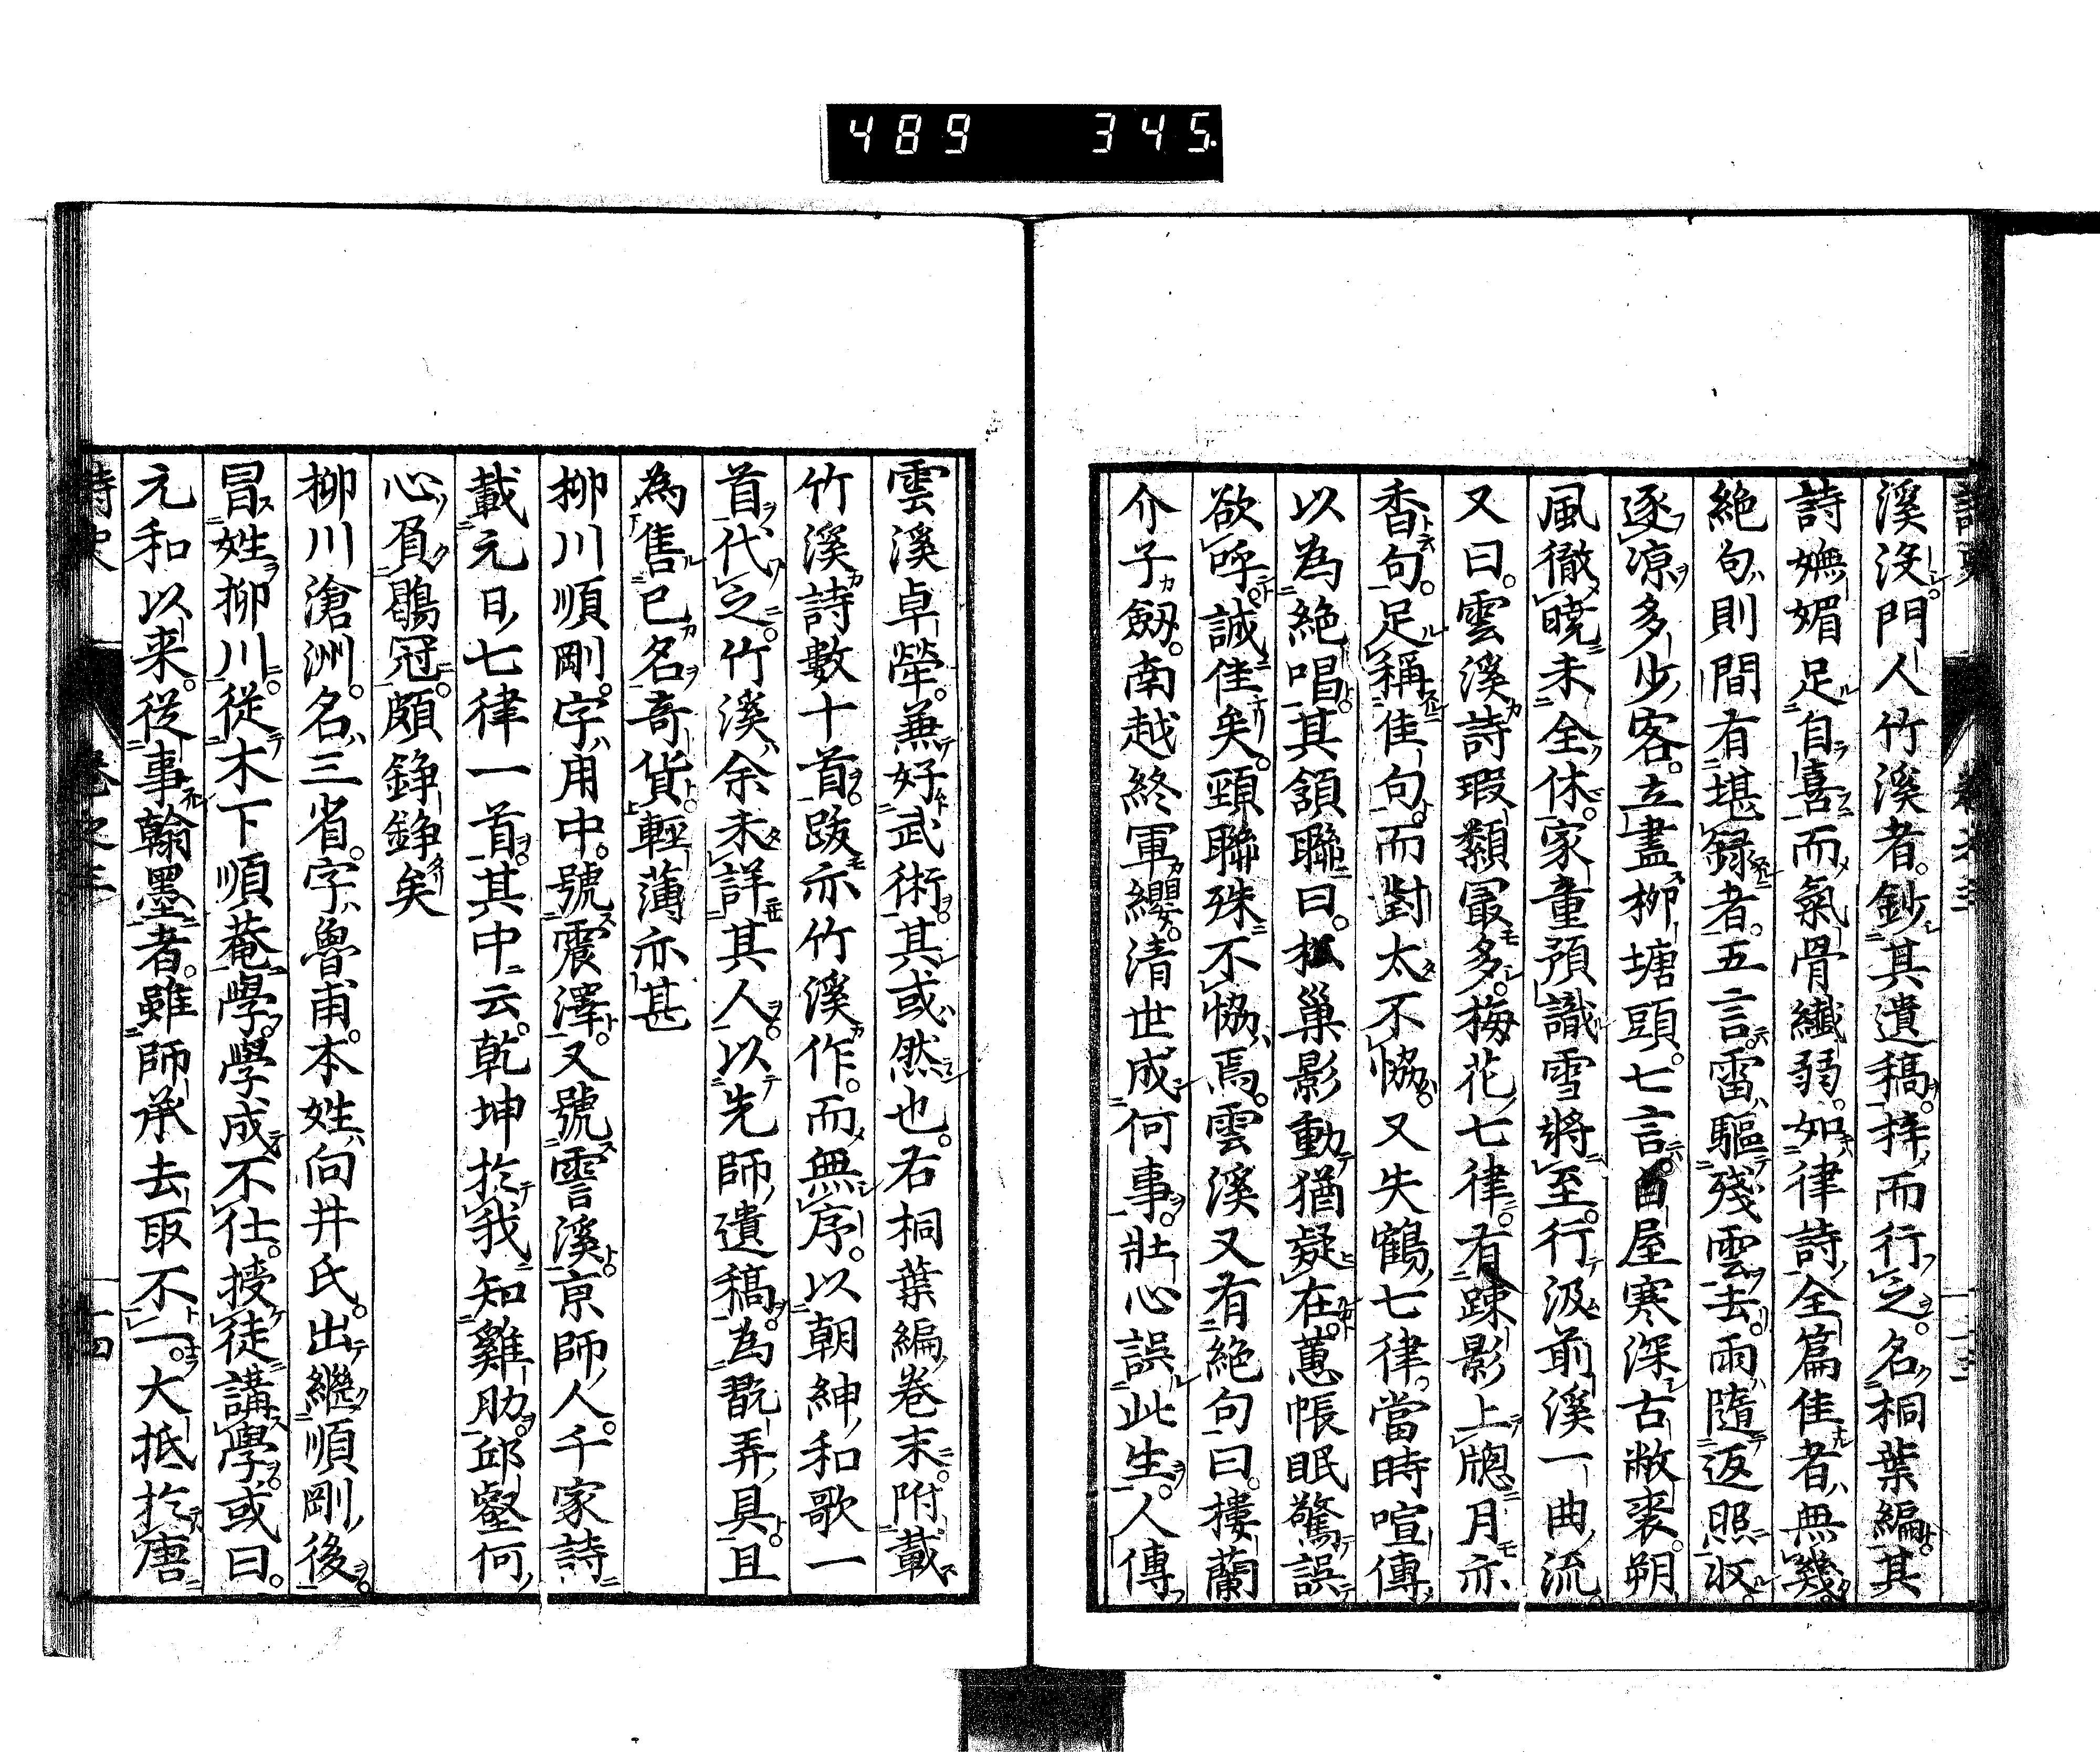 489 345
溪沒門人竹溪者鈔其遺稿梓而行之名桐葉編其
詩嫵媚足自喜而氣骨纖弱如律詩全篇佳者無幾
絶句則間有堪錄者五言雷驅殘雲去雨隨返照收
逐凉多少客立盡柳塘頭七言屋寒深古敝裘朔
風徹曉未全休家童預識雪將至行汲前溪一曲流
又曰雲溪詩瑕纇最多梅花七律有疎影上牕月亦
香句足稱佳句而對太不恊又失鶴七律當時喧傳
以為絶唱其頷聯曰松巢影動猶疑在蕙帳眠驚誤
欲呼誠佳矣頸聯殊不恊焉雲溪又有絶句曰樓蘭
介子劔南越終軍纓清世成何事壯心誤此生人傳
雲溪卓犖兼好武術其或然也右桐葉編卷末附載
竹溪詩數十首跋亦竹溪作而無序以朝紳和歌一
首代之竹溪余未詳其人以先師遺稿為翫弄具且
為售已名奇貨輕薄亦甚
柳川順剛字用中號震澤又號雲溪京師人千家詩
載元日七律一首其中云乾坤於我知雞肋邱壑何
心負鶡冠頗錚錚矣
柳川滄洲名三省字魯甫本姓向井氏出繼順剛後
冒姓柳川從木下順菴學學成不仕授徒講學或曰
元和以来從事翰墨者雖師承去取不一大抵於唐
詩史 卷之三 十四